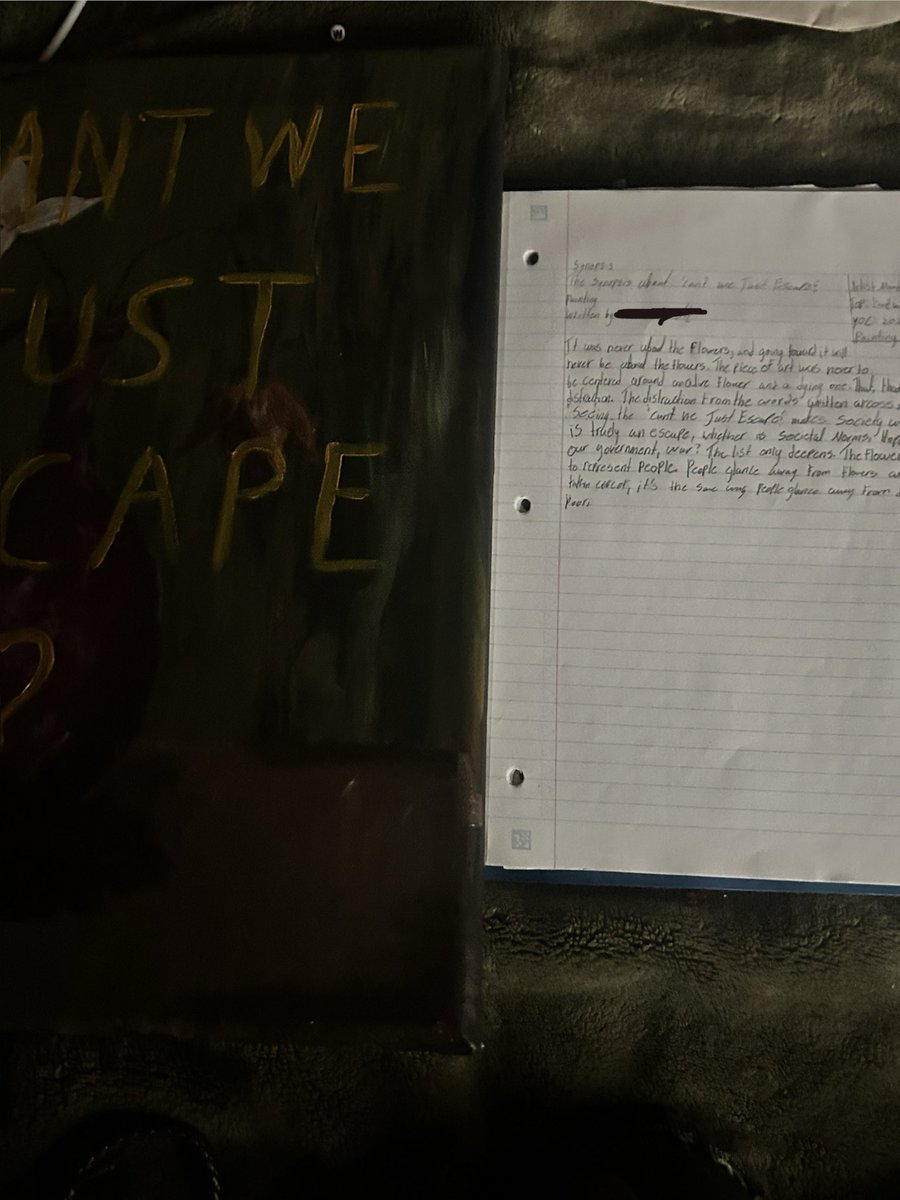 ANT WE
UST
CAPE
?
Synopsis
The Synopsis about 'cant we Just Escape?
Painting
written by
Artist
YOC: 202
Painting
It was never about the Flowers, and going foward it will
never be about the flowers. The piece of art was never to
be centered around an alive Flower and a dying one. That,
distraction. The distraction From the words written across
Seeing the 'cant We Just Escape? makes Society
is truly an escape, whether is Societal Norms,
our government, war? The list only deepens. The Flower
to represent People. People glance away From Flowers
it's the same way People glance away From
Poor.